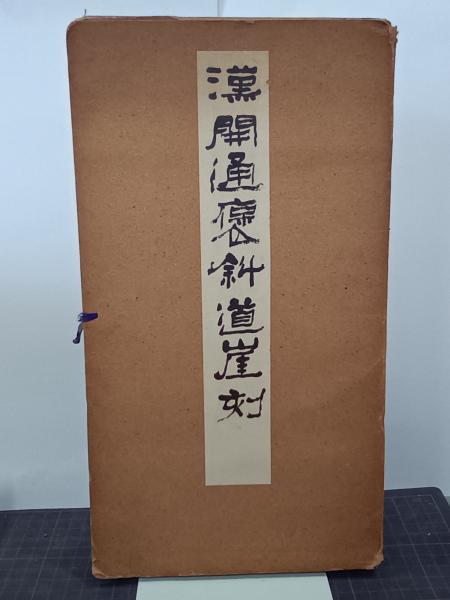 漢開通褒斜道崖刻